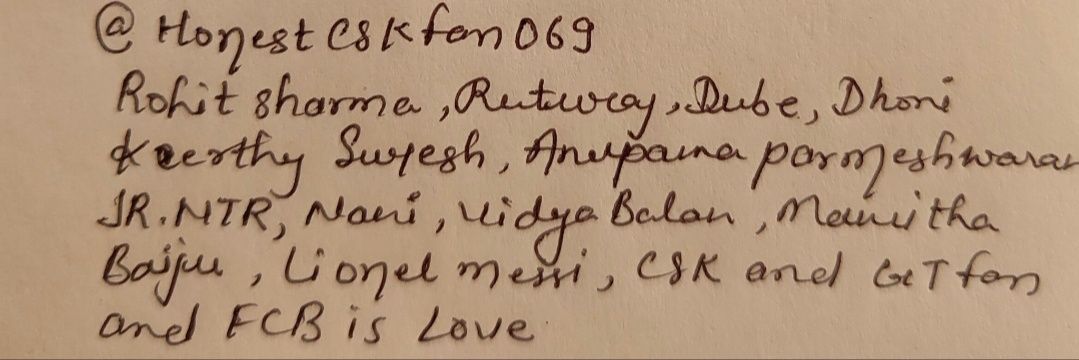 @ Honest CSK fan 069
Rohit sharma, Ruturaj, Dube, Dhoni
Keerthy Suresh, Anupama parmeshwaran
JR. NTR, Nani, vidya Balan, Mamitha
Baiju, Lionel messi, CSK and GT fan
and FCB is Love